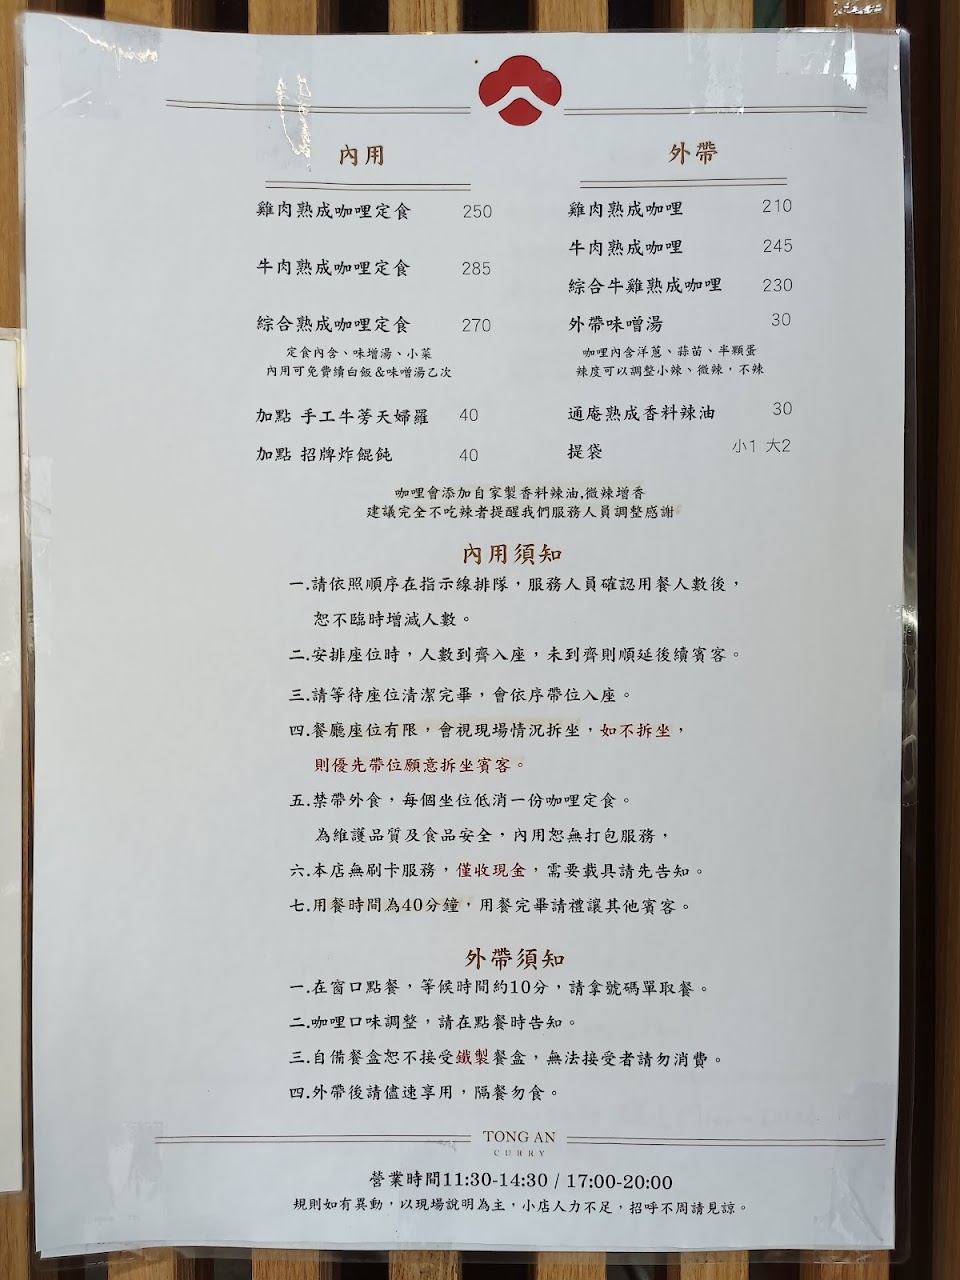 內用
雞肉熟成咖哩定食 250
牛肉熟成咖哩定食 285
綜合熟成咖哩定食 270
定食內含、味增湯、小菜
內用可免費續白飯&味噌湯乙次
加點 手工牛蒡天婦羅 40
加點 招牌炸餛飩 40
外帶
雞肉熟成咖哩 210
牛肉熟成咖哩 245
綜合牛雞熟成咖哩 230
外帶味噌湯 30
咖哩內含洋蔥、蒜苗、半顆蛋
辣度可以調整小辣、微辣,不辣
通庵熟成香料辣油 30
提袋 小1 大2
咖哩會添加自家製香料辣油,微辣增香
建議完全不吃辣者提醒我們服務人員調整感謝
內用須知
一.請依照順序在指示線排隊,服務人員確認用餐人數後,
恕不臨時增減人數。
二.安排座位時,人數到齊入座,未到齊則順延後續賓客。
三.請等待座位清潔完畢,會依序帶位入座。
四.餐廳座位有限,會視現場情況拆坐,如不拆坐,
則優先帶位願意拆坐賓客。
五.禁帶外食,每個坐位低消一份咖哩定食。
為維護品質及食品安全,內用恕無打包服務,
六.本店無刷卡服務,僅收現金,需要載具請先告知。
七.用餐時間為40分鐘,用餐完畢請禮讓其他賓客。
外帶須知
一.在窗口點餐,等候時間約10分,請拿號碼單取餐。
二.咖哩口味調整,請在點餐時告知。
三.自備餐盒恕不接受鐵製餐盒,無法接受者請勿消費。
四.外帶後請儘速享用,隔餐勿食。
TONG AN
CURRY
營業時間11:30-14:30 / 17:00-20:00
規則如有異動,以現場說明為主,小店人力不足,招呼不周請見諒。